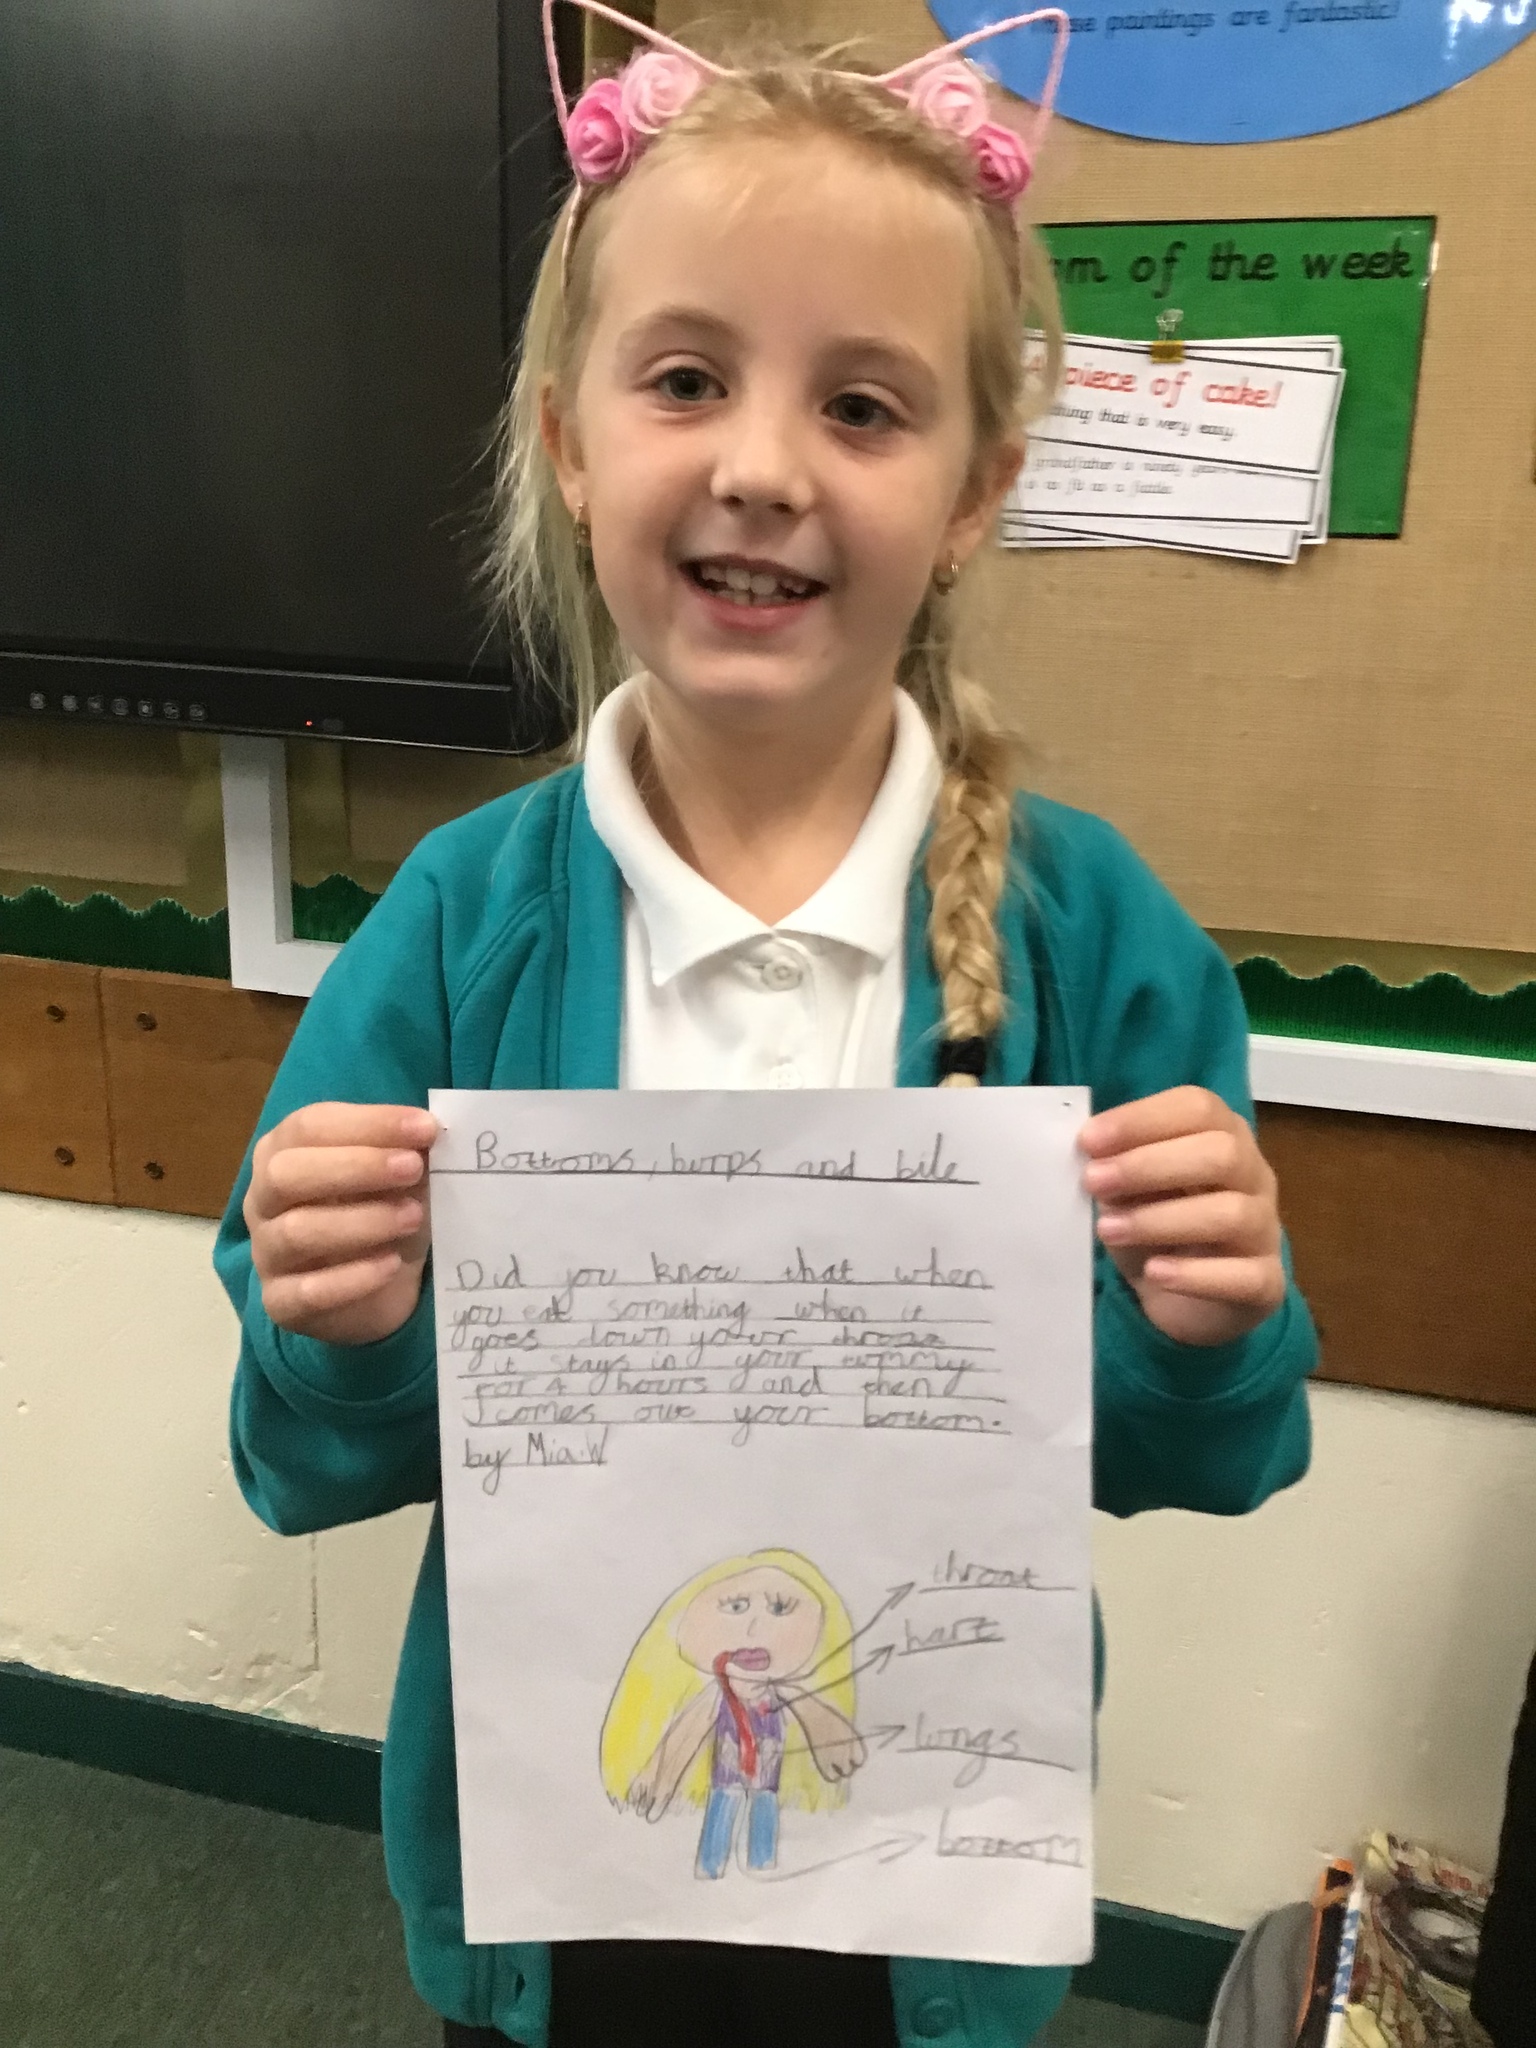 these paintings are fantastic!
of the week
A piece of cake!
thing that is very easy.
grandfather is ninety years
is as fit as a fiddle.
Bottoms, burps and bile
Did you know that when
you eat something when it
goes down your throat
it stays in your tummy
for 4 hours and then
comes out your bottom.
by Mia.W
throat
hart
lungs
bottom